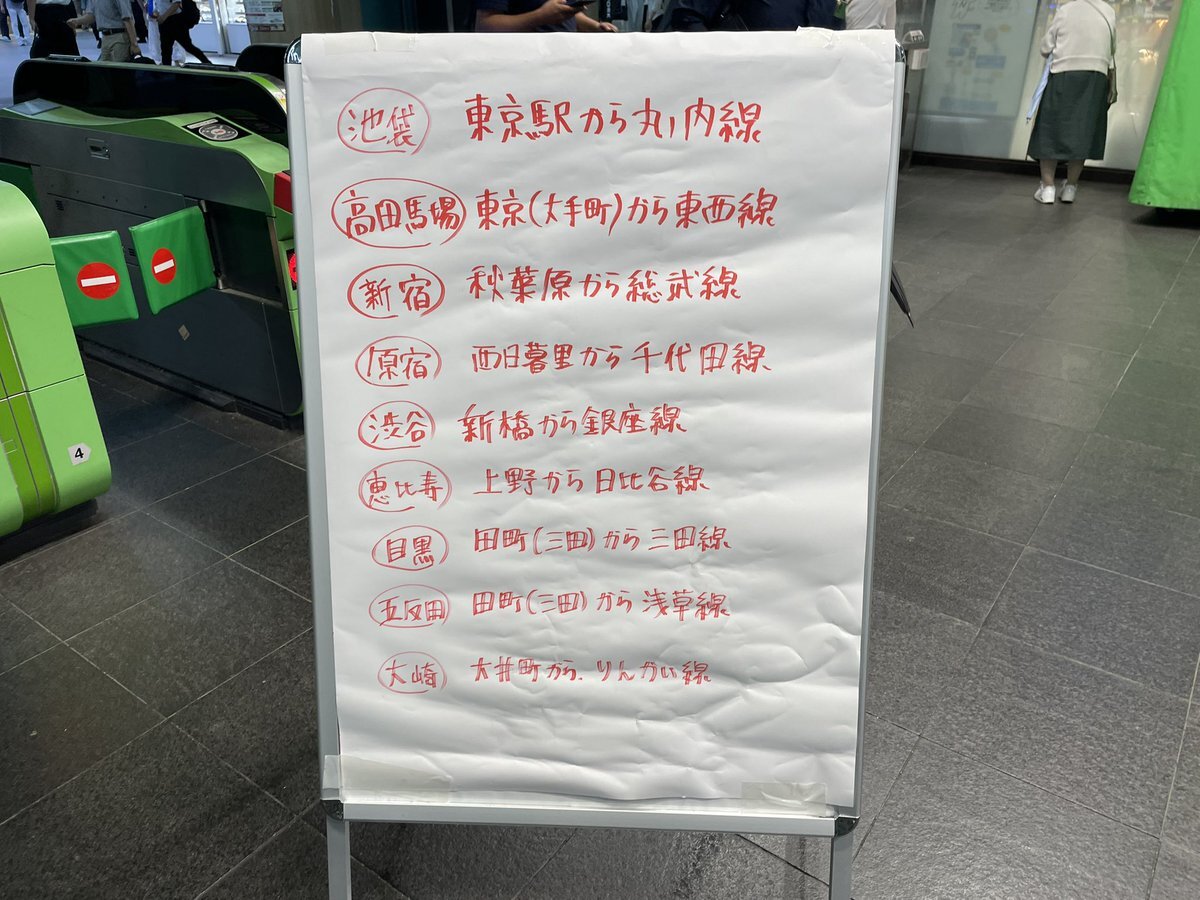 池袋 東京駅から丸ノ内線
高田馬場 東京(大手町)から東西線
新宿 秋葉原から総武線
原宿 西日暮里から千代田線
渋谷 新橋から銀座線
恵比寿 上野から日比谷線
目黒 田町(三田)から三田線
五反田 田町(三田)から浅草線
大崎 大井町から、りんかい線
4